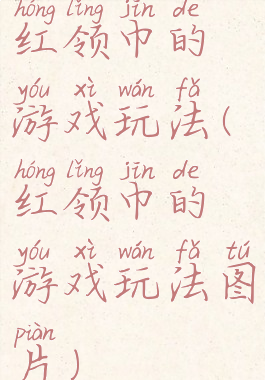 hóng lǐng jīn de
红领巾的
yóu xì wán fǎ
游戏玩法(
hóng lǐng jīn de
红领巾的
yóu xì wán fǎ tú
游戏玩法图
piàn
片)